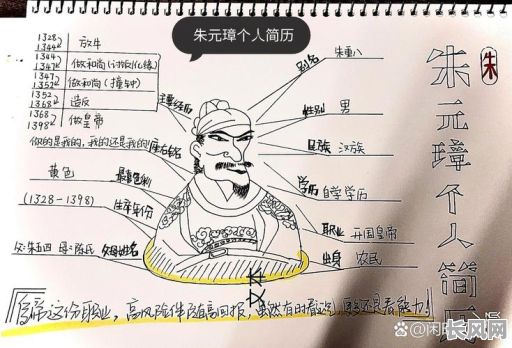 朱元璋个人简历
1328~1344 放牛
1344~1347 做和尚(讨饭化缘)
1347~1352 做和尚(撞钟)
1352~1368 造反
1368~1398 做皇帝
主要经历
你的是我的,我的还是我的 座右铭
黄色 最喜色彩
(1328-1398) 生卒年份
父:朱五四 母:陈氏 父母姓名
别名 朱重八
性别 男
民族 汉族
学历 自学学历
职业 开国皇帝
出身 农民
朱元璋个人简历
朱
皇帝这份职业,高风险伴随高回报,虽然有时看运气,但还是看能力!
长风网